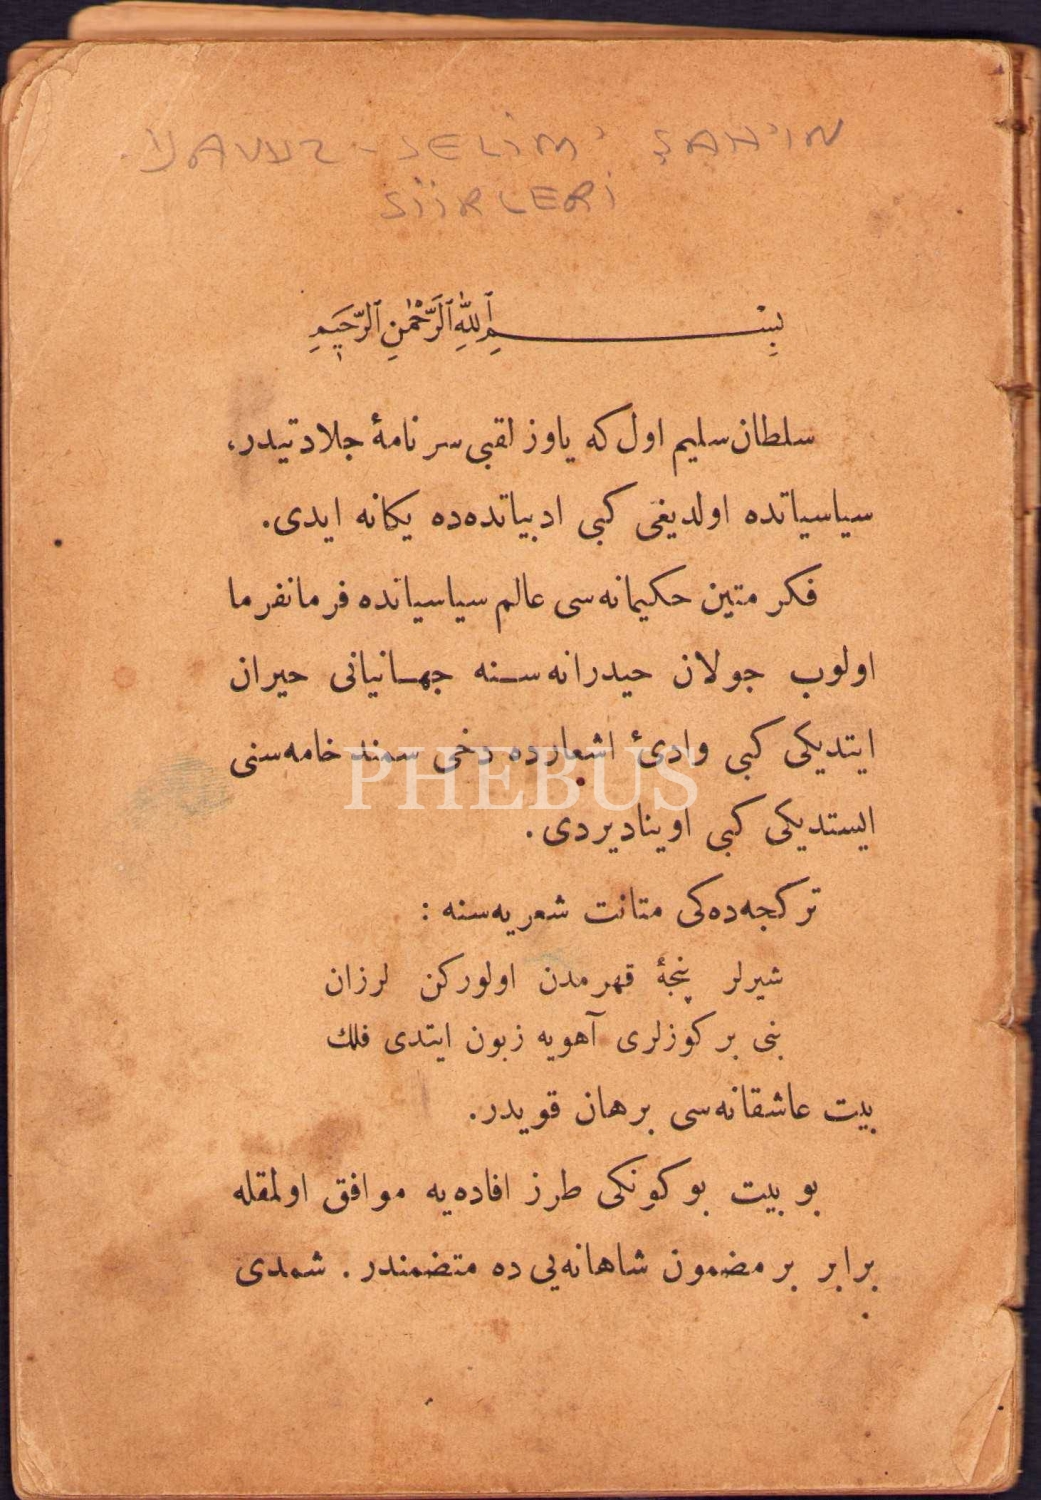 YAVUZ-SELİM' ŞAH'IN
ŞİİRLERİ
بِسْمِ ٱللّٰهِ ٱلرَّحْمٰنِ ٱلرَّحِيمِ
سلطان سليم اول كه ياوز لقبى سرنامهٔ جلادتيدر،
سياسياتده اولديغى كبى ادبياتده‌ده يكانه ايدى.
فكر متين حكيمانه‌سى عالم سياسياتده فرمانفرما
اولوب جولان حيدرانه‌سنه جهانيانى حيران
ايتديكى كبى وادئ اشعارده دخى سمند خامه‌سنى
ايستديكى كبى اوينادیردى.
PHEBUS
تركجه‌ده‌كى متانت شعريه‌سنه :
شيرلر پنجهٔ قهرمدن اولوركن لرزان
بنى بر كوزلرى آهويه زبون ايتدى فلك
بيت عاشقانه‌سى برهان قويدر.
بو بيت بوكونكى طرز افاده‌يه موافق اولمقله
برابر بر مضمون شاهانه‌يى ده متضمندر. شمدى